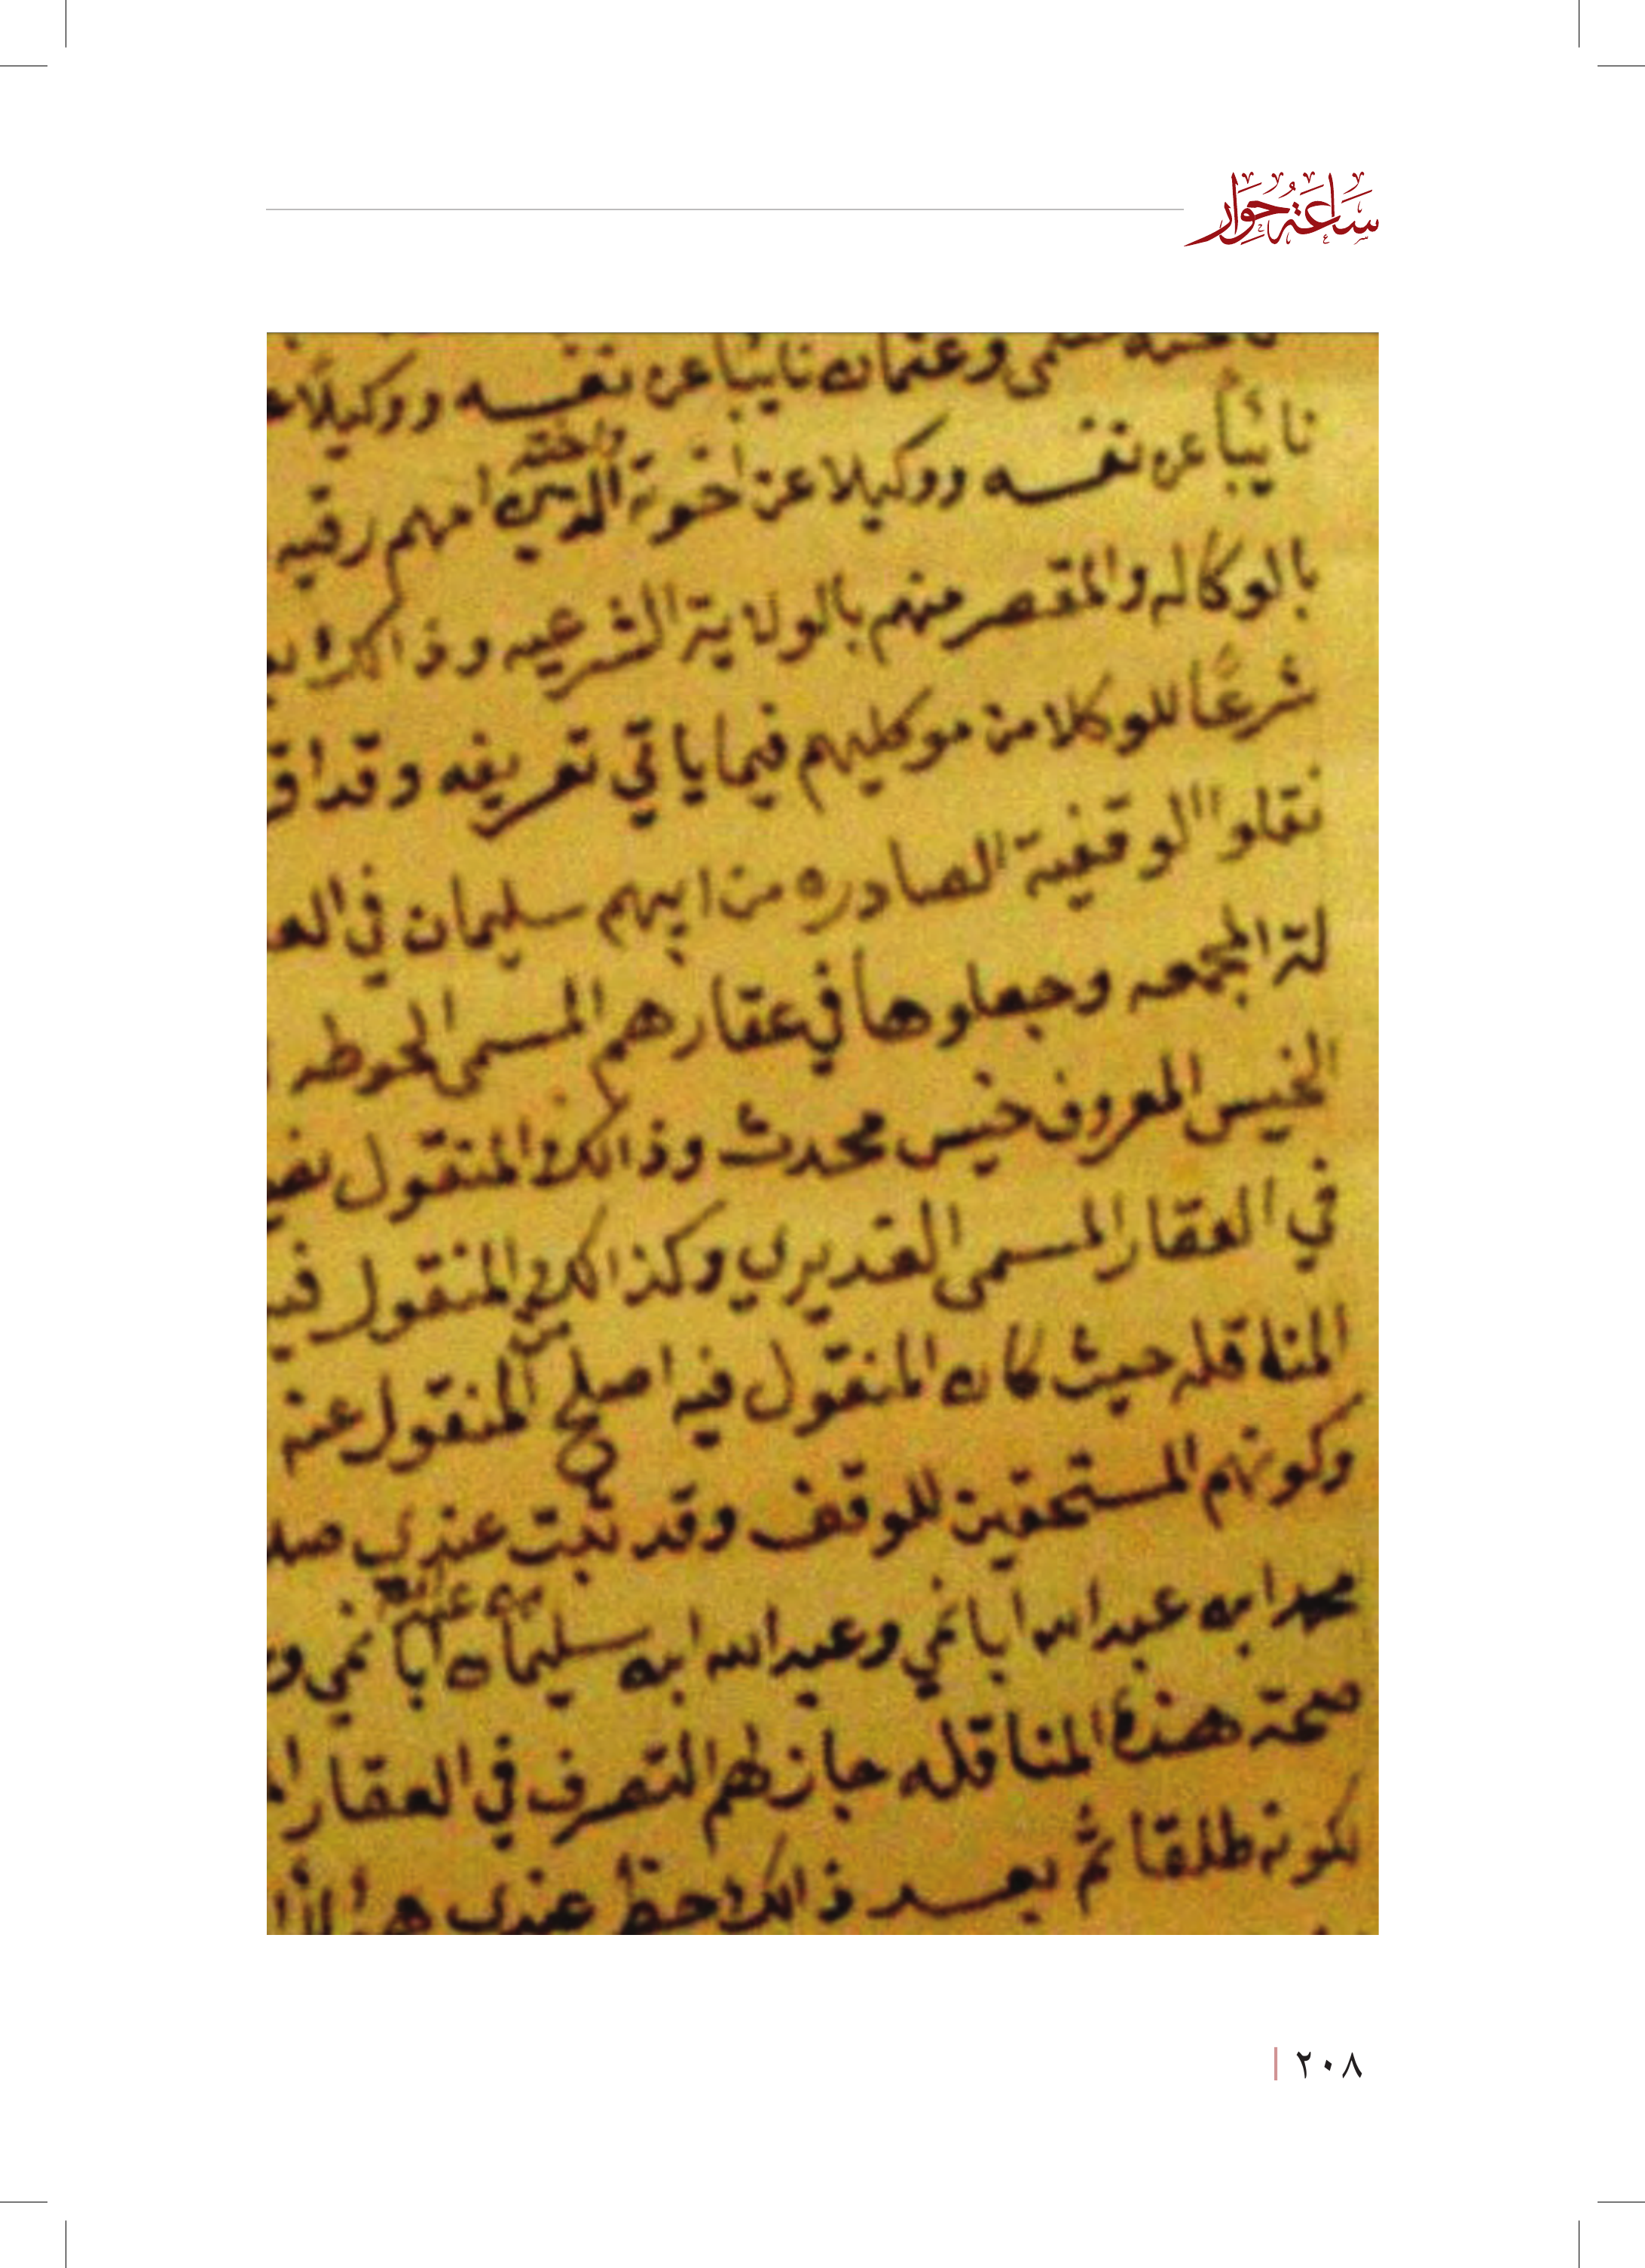 سَاعَةُ حِوَار
وعثمان نايباً عن نفسه ووكيلاً
نايباً عن نفسه ووكيلا عن اخوته الذين امهم رقيه
واخته
بالوكاله والمقصر منهم بالولاية الشرعيه وذالك
شرعًا للوكلا من موكليهم فيما ياتي تعريفه وقد
نقلوا الوقفية الصادره من ابيهم سليمان في
لة المجمعه وجعلوها في عقارهم المسمى الحوطه
الخيس المعروف خيس محدث وذالك المنقول
في العقار المسمى الغديري وكذالك المنقول
المناقله حيث كان المنقول فيه اصلح المنقول عنه
من
وكونهم المستحقين للوقف وقد ثبت عندي
محمد ابن عبدالله ابانمي وعبدالله ابن سليمان ابانمي
صحة هذه المناقله جاز لهم التصرف في العقار
لكونه طلقا ثم بعد ذالك حظر عندي
٢٠٨